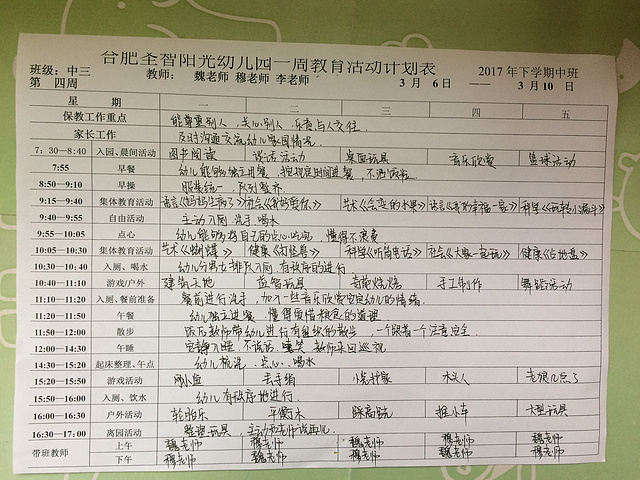 合肥全智阳光幼儿园一周教育活动计划表
班级：中三 教师： 魏老师 穆老师 李老师 2017 年下学期中班
第 四周 3 月 6日 —— 3 月 10 日
星 期 一 二 三 四 五
保教工作重点 能尊重别人，关心别人，乐意与人交往.
家长工作 及时沟通交流幼儿家园情况.
7：30—8:40 入园、晨间活动 图书阅读 谈话活动 桌面玩具 音乐欣赏 篮球活动
7:55 早餐 幼儿能够独立进餐，按规定时间进餐，不洒饭粒
8:50—9:10 早操 服装统一，队列整齐
9:15—9:40 集体教育活动 语言《妈妈生病了》 社会 艺术《会变的水果》 语言 科学
9:40—9:55 自由活动 主动入厕 洗手 喝水
9:55—10:05 点心 幼儿能够将自己的点心吃完，懂得不浪费
10:05—10:30 集体教育活动 艺术《蝴蝶》 健康《打怪兽》 科学《听筒电话》 社会《大家一起玩》 健康《占地盘》
10:30—10:40 入厕、喝水 幼儿分男女排队入厕 有秩序的进行
10:40—11:10 游戏/户外 建筑天地 益智玩具 手工制作 舞蹈活动
11:10—11:20 入厕、餐前准备 餐前进行洗手，加入一些音乐欣赏安定幼儿的情绪.
11:20—11:50 午餐 幼儿独立进餐，懂得爱惜粮食的道理
11:50—12:00 散步 饭后教师带幼儿进行有组织的散步，一个跟着一个注意安全.
12:00—14:30 午睡 安静入睡，不说话、嬉笑 教师来回巡视
14:30—15:20 起床整理、午点 幼儿梳洗、点心、喝水
15:20—15:50 游戏活动 网小鱼 丢手绢 木头人 老狼几点了
15:50—16:00 入厕、饮水 幼儿有秩序地进行.
16:00—16:30 户外活动 轮胎乐 平衡木 踩高跷 推小车 大型玩具
16:30—17:00 离园活动 整理玩具，主动和老师说再见.
带班教师 上午 魏老师 穆老师 魏老师 穆老师 魏老师
下午 穆老师 魏老师 穆老师 魏老师 穆老师